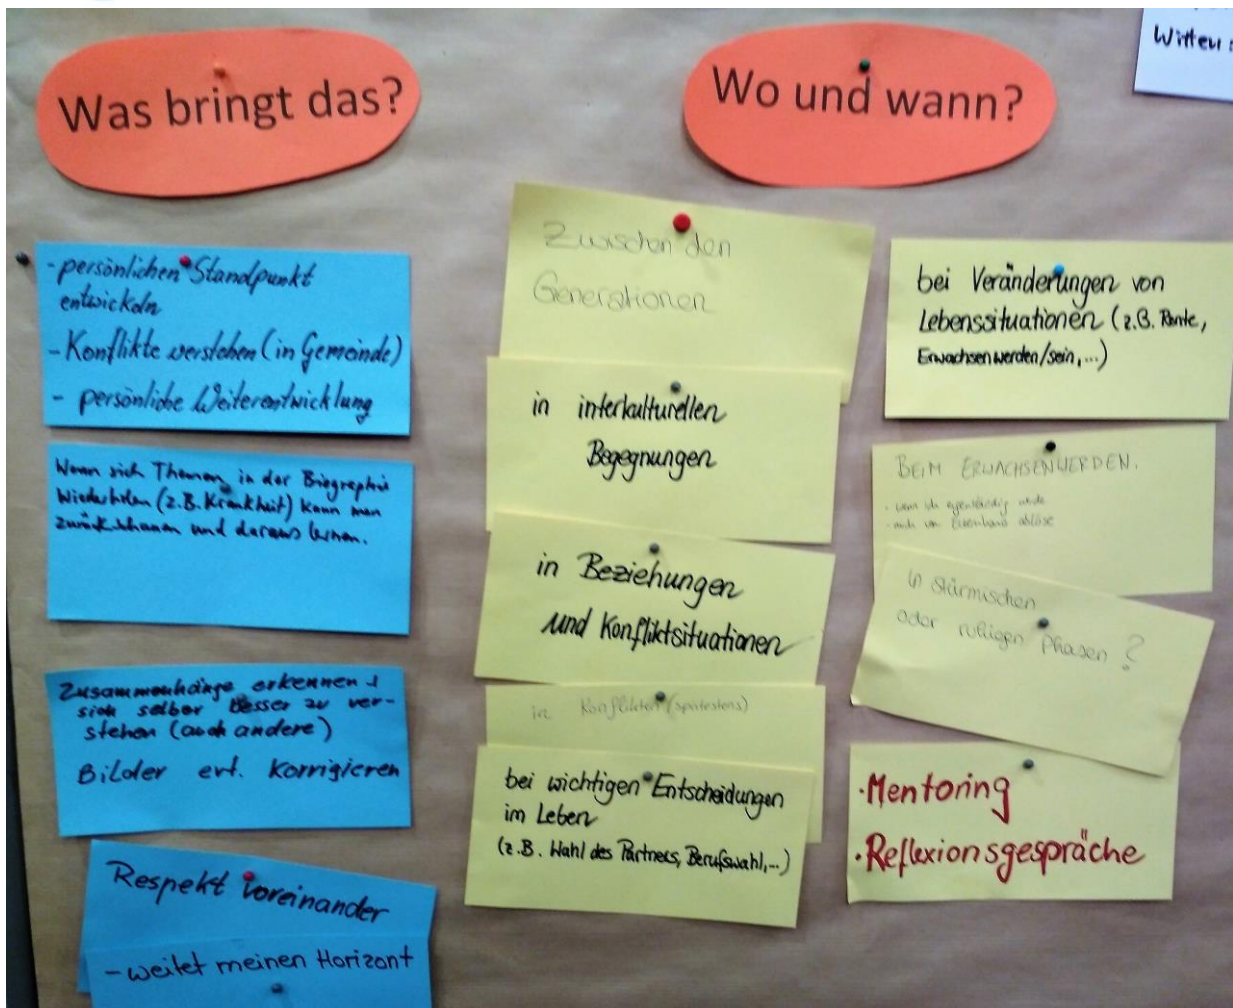 Was bringt das?
- persönlichen Standpunkt
entwickeln
- Konflikte verstehen (in Gemeinde)
- persönliche Weiterentwicklung
Wenn sich Themen in der Biographie
Wiederholen (z.B. Krankheit) kann man
zurückschauen und daraus lernen.
Zusammenhänge erkennen +
sich selber besser zu ver-
stehen (auch andere)
Bilder evt. Korrigieren
Respekt voreinander
- weitet meinen Horizont
Wo und wann?
Zwischen den
Generationen
in interkulturellen
Begegnungen
in Beziehungen
und Konfliktsituationen
in Konflikten (spätestens)
bei wichtigen Entscheidungen
im Leben
(z.B. Wahl des Partners, Berufswahl,...)
bei Veränderungen von
Lebenssituationen (z.B. Rente,
Erwachsen werden/sein,...)
BEIM ERWACHSENWERDEN.
- wenn ich eigenständig werde
- mich vom Elternhaus ablöse
In stürmischen
oder ruhigen Phasen?
· Mentoring
· Reflexionsgespräche
Witten